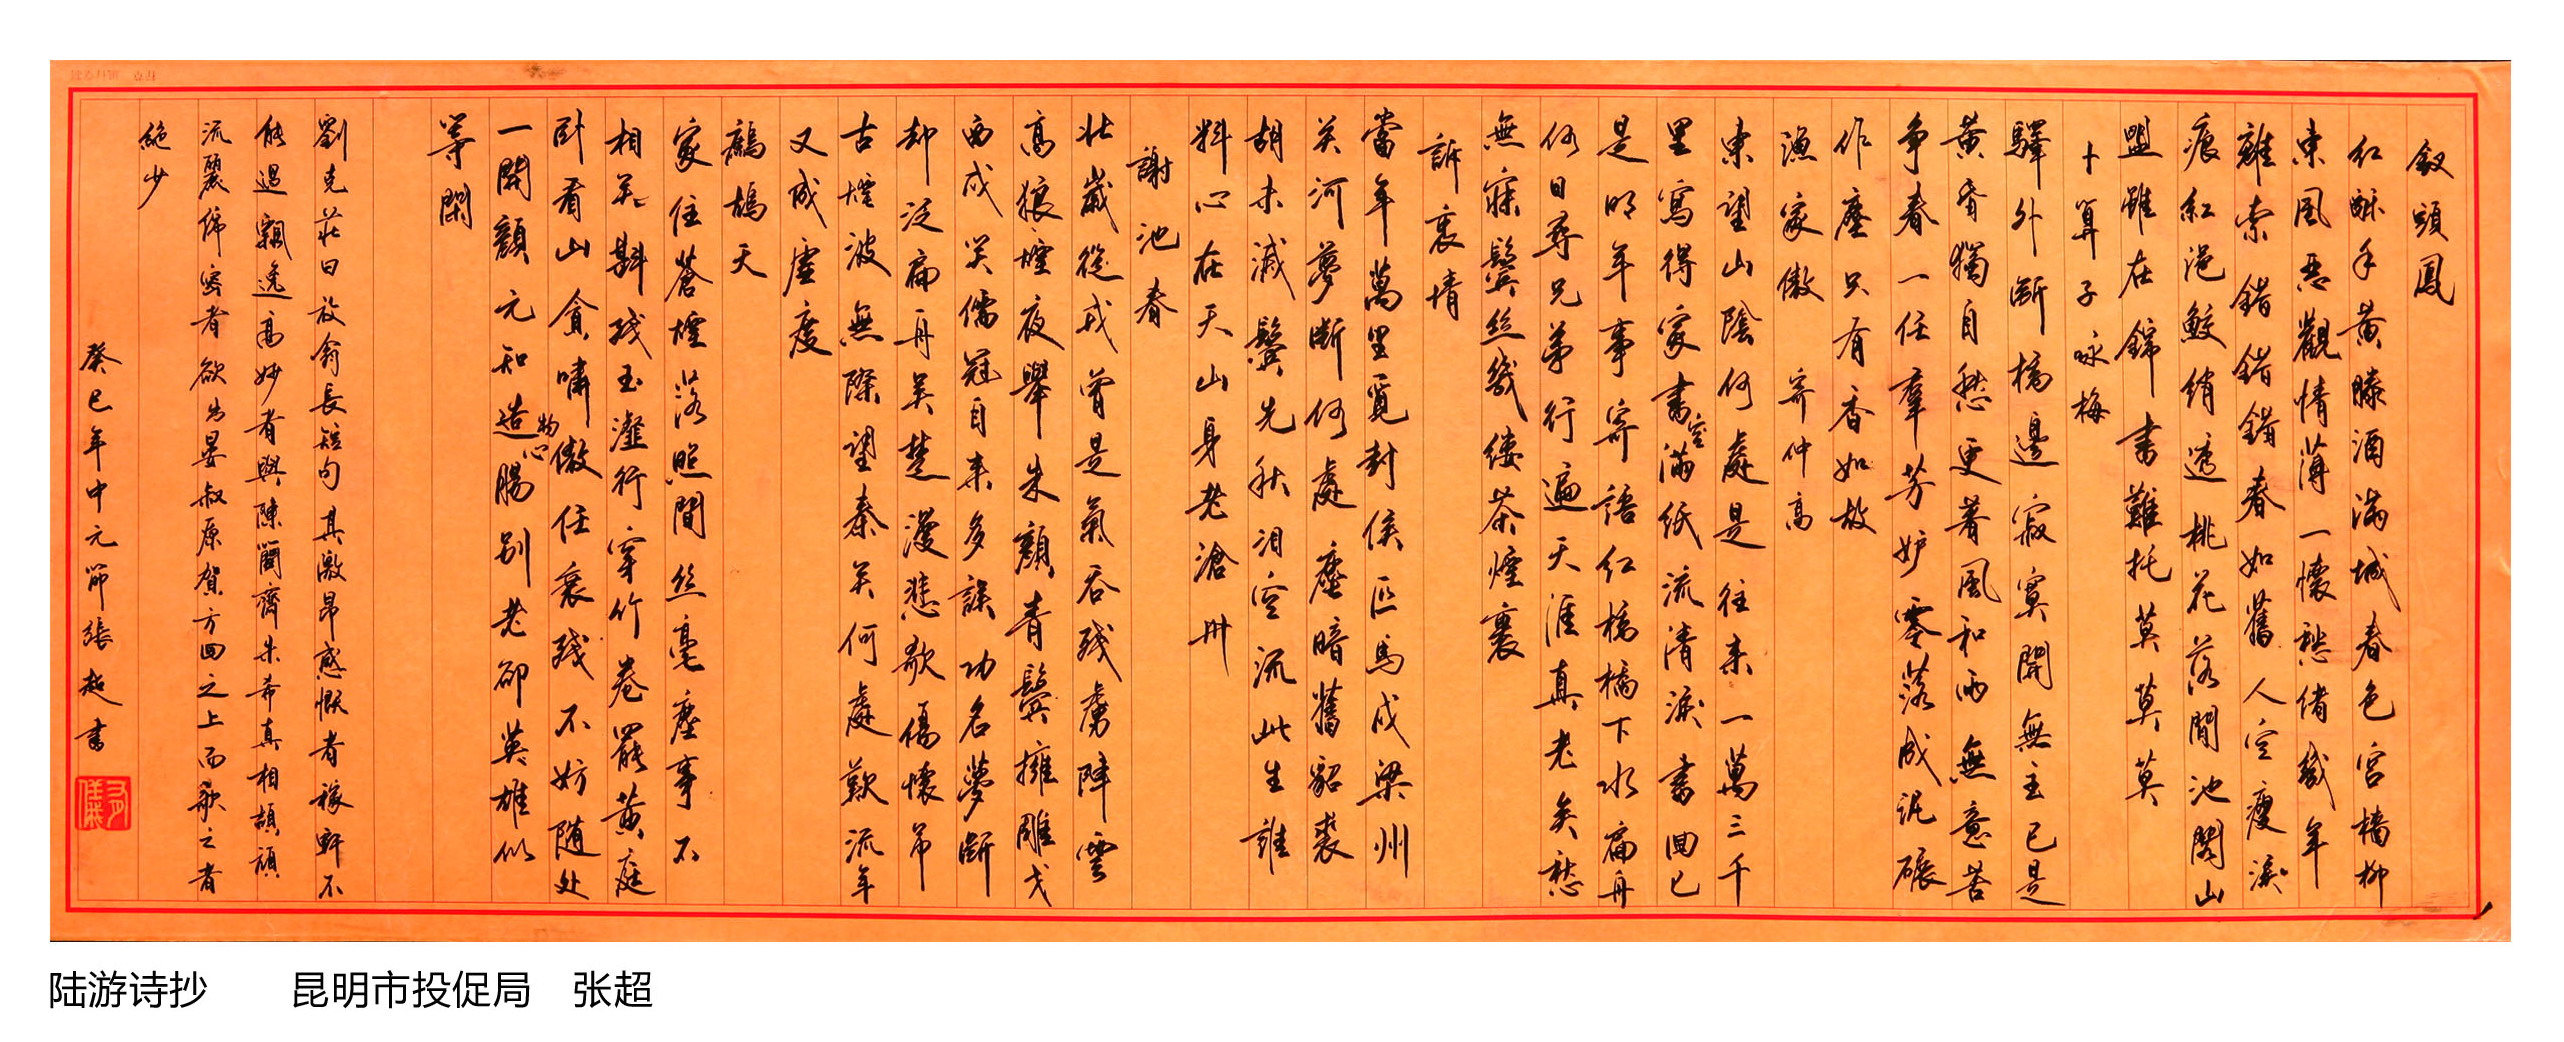 釵頭鳳
紅酥手黄滕酒滿城春色宫墙柳
東風惡觀情薄一懷愁緒幾年
離索錯錯錯春如舊人空瘦淚
痕紅浥鲛绡透桃花落閒池閣山
盟雖在錦書難托莫莫莫
卜算子咏梅
驛外断橋邊寂寞開無主已是
黄昏獨自愁更著風和雨無意苦
争春一任羣芳妒零落成泥碾
作塵只有香如故
漁家傲 寄仲高
東望山陰何處是往来一萬三千
里寫得家書空滿紙流清淚書回已
是明年事寄語红橋橋下水扁舟
何日尋兄弟行遍天涯真老矣愁
無寐鬓丝幾缕茶煙裏
訴衷情
當年萬里覓封侯匹馬戍梁州
关河夢断何處塵暗舊貂裘
胡未滅鬓先秋泪空流此生誰
料心在天山身老滄州
謝池春
壮歲從戎曾是氣吞残虜陣雲
高狼煙夜舉朱顏青鬓擁雕戈
西戍笑儒冠自来多誤功名夢断
却泛扁舟吴楚漫悲歌傷懷吊
古煙波無際望秦关何處歎流年
又成虚度
鷓鴣天
家住蒼煙落照間丝毫塵事不
相关斟残玉瀣行穿竹卷罷黄庭
卧看山貪嘯傲任衰残不妨随处
一開顏元知造物心腸别老却英雄似
等閑
劉克莊曰放翁長短句其激昂感慨者稼軒不
能過飄逸高妙者與陳簡齋朱希真相頡頏
流麗绵密者欲出晏叔原賀方回之上而歌之者
絕少
癸巳年中元節張超書
陆游诗抄 昆明市投促局 张超